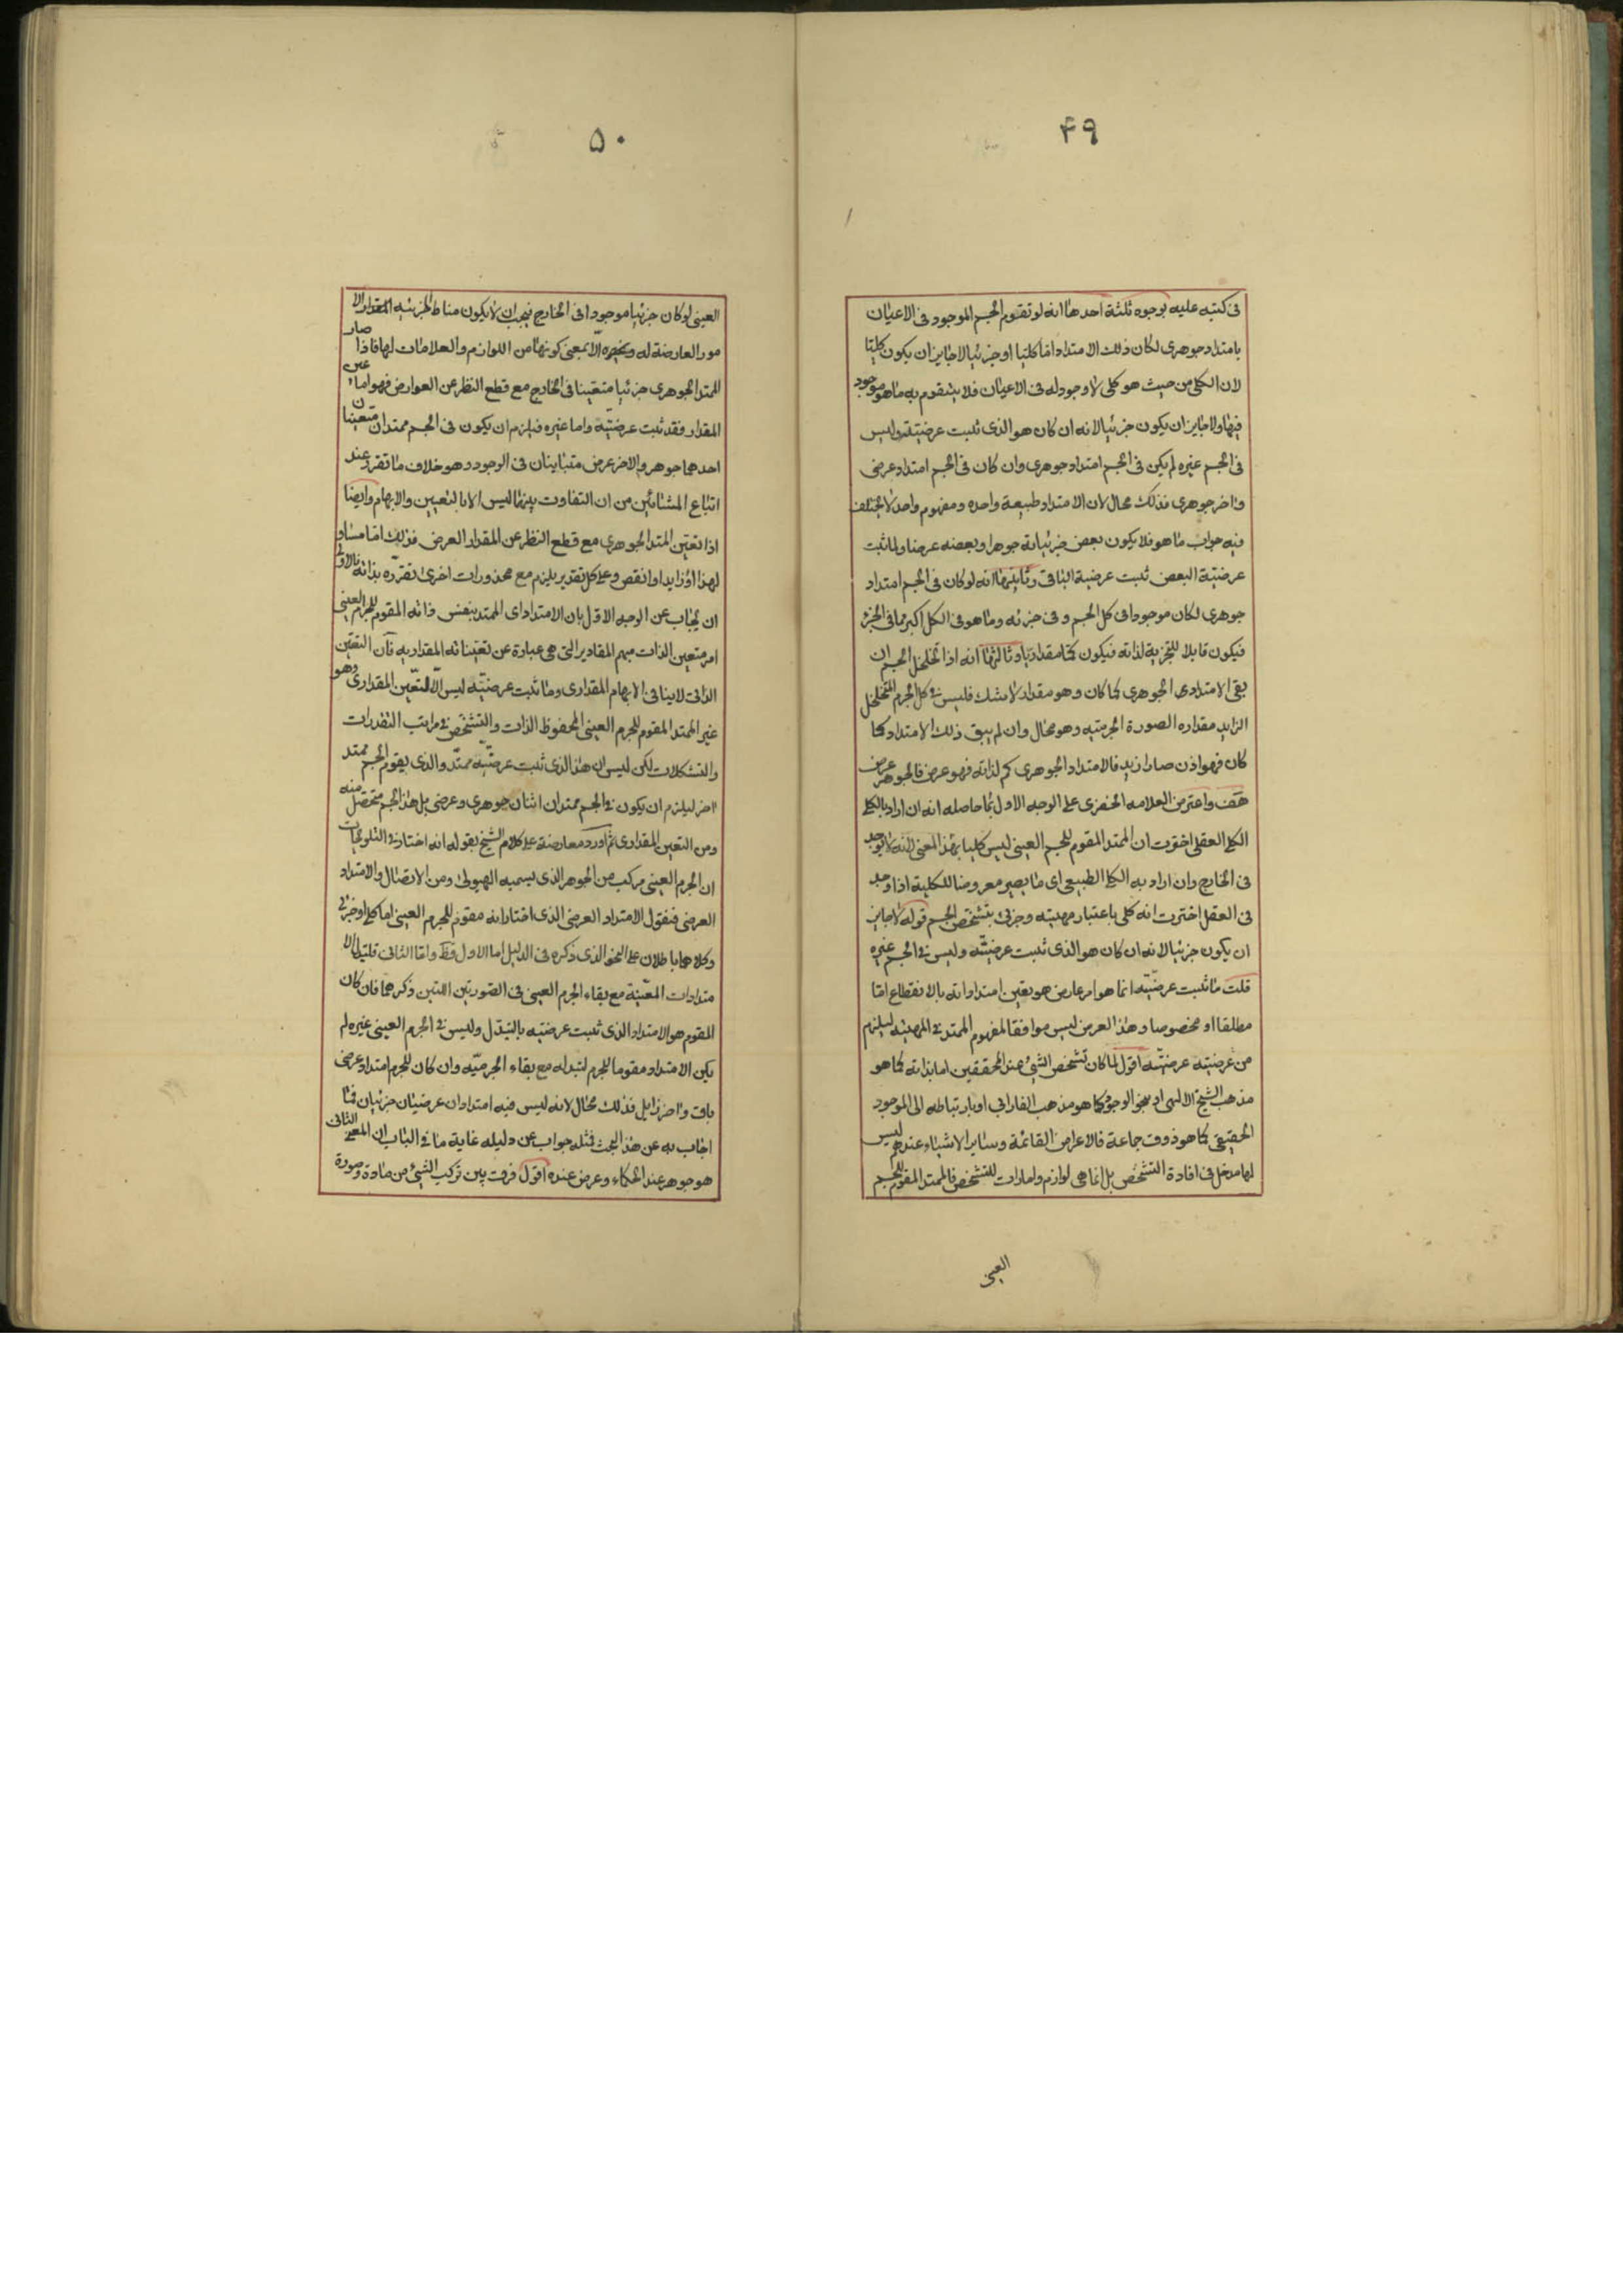 ۴۹
فی کتبه علیه بوجوه ثلثة احدها انه لو تقوم الجسم الموجود فی الاعیان
بامتداد جوهری لکان ذلک الامتداد اما کلیا او جزئیا لا جایز ان یکون کلیا
لان الکلی من حیث هو کلی لا وجود له فی الاعیان فلا یتقوم به ما هو موجود
فیها ولا جایز ان یکون جزئیا لانه ان کان هو الذی ثبت عرضیته ولیس
فی الجسم غیره لم یکن فی الجسم امتداد جوهری وان کان فی الجسم امتداد عرضی
واخر جوهری فذلک محال لان الامتداد طبیعة واحده ومفهوم واحد لا یختلف
فیه جواب ما هو فلا یکون بعض جزئیاته جوهرا وبعضه عرضا ولما ثبت
عرضیّة البعض ثبت عرضیة الباقی وثانیها انه لو کان فی الجسم امتداد
جوهری لکان موجودا فی کل الجسم و فی جزئه وما هو فی الکل اکبر مما فی الجزؤ
فیکون قابلا للتجزیة لذاته فیکون کمّا مقداریا وثالثها انه اذا تخلخل الجسم ان
بقی الامتدادی الجوهری کما کان وهو مقدار لا مشک فلیس فی کل الجرم المتخلخل
الزاید مقداره الصورة الجرمیّه وهو محال وان لم یبق ذلک الامتداد کما
کان فهو اذن صار ازید فالامتداد الجوهری کم لذاته فهو عرض فالجوهر عرض
هف واعترض العلامه الخفری علی الوجه الاول بما حاصله انه ان اراد بالکلی
الکلی العقلی اخترت ان الممتد المقوم للجسم العینی لیس کلیا بهذا المعنی لانه لا یوجد
فی الخارج وان اراد به الکلی الطبیعی ای ما یصیر معروضا للکلیة اذا وجد
فی العقل اخترت انه کلی باعتبار مهیته وجزئی بتشخص الجسم قوله لا جایز
ان یکون جزئیا لانه ان کان هو الذی ثبت عرضیّته ولیس فی الجسم غیره
قلت ما ثبت عرضیّته انما هو امر عارض هو تعین امتداداته بالانقطاع اما
مطلقا او مخصوصا وهذا العرض لیس موافقا لمفهوم الممتد فی المهیّه لیلزم
من عرضیته عرضیّته اقول لما کان تشخص الشیئ عند المحققین اما بذاته کما هو
مذهب الشیخ الالهی او بنحو الوجود کما هو مذهب الفارابی او بارتباطه الی الموجود
الحقیقی کما هو ذوق جماعة فالاعراض القائمة وسایر الاشیاء عندهم لیس
لها مدخل فی افادة التشخص بل انما هی لوازم وامارات للتشخص فالممتد المقوم للجسم
العینی
۵۰
العینی لو کان جزئیا موجودا فی الخارج یجب ان لا یکون مناط الجزئیه المقدار والا
مور العارضة له وغیره الا بمعنی کونها من اللوازم والعلامات لها فاذا صار
الممتد الجوهری جزئیا متعیّنا فی الخارج مع قطع النظر عن العوارض فهو اما عین
المقدار فقد ثبت عرضیّته واما غیره فیلزم ان یکون فی الجسم ممتدان متعینان
احدهما جوهر والاخر عرض متباینان فی الوجود وهو خلاف ما تقرر عند
اتباع المشائین من ان التفاوت بینهما لیس الا بالتعیین والابهام وایضا
اذا تعیّن الممتد الجوهری مع قطع النظر عن المقدار العرض فذلک اما مساو
لهذا او زاید او انقص وعلی کل تقدیر یلزم مع محذورات اخری تقدّره بذاته فالاولی
ان یجاب عن الوجه الاوّل بان الامتداد ای الممتد بنفس ذاته المقوم للجرم العینی
امر متعین الذات مبهم المقادیر التی هی عبارة عن تعیّناته المقداریه فان التعیّن
الذاتی لا ینافی الابهام المقداری وما ثبت عرضیّته لیس الا التعیّن المقداری وهو
غیر الممتد المقوم للجرم العینی المحفوظ الذات والتشخص فی مراتب التقدرات
والتشکلات لکن لیس ان هذا الذی ثبت عرضیّته ممتد والذی یقوم الجسم ممتد
اخر لیلزم ان یکون فی الجسم ممتدان اثنان جوهری وعرضی بل هذا الجسم متحصل منه
ومن التعین المقداری ثم اورد معارضة علی کلام الشیخ بقوله انه اختار فی التلویحات
ان الجرم العینی مرکب من الجوهر الذی یسمیه الهیولی ومن الاتصال والامتداد
العرضی فنقول الامتداد العرضی الذی اختار انه مقوّم للجرم العینی اما کلی او جزئی
وکلاهما باطلان علی النحو الذی ذکره فی الدلیل اما الاول فظ واما الثانی فلتبدل الا
متدادات المعیّنة مع بقاء الجرم العینی فی الصورتین اللتین ذکرهما فان کان
المقوم هو الامتداد الذی ثبت عرضیّته بالتبدّل ولیس فی الجرم العینی غیره لم
یکن الامتداد مقوما للجرم لتبدله مع بقاء الجرمیّه وان کان للجرم امتداد عرضی
باق واخر زایل فذلک محال لانه لیس فیه امتدادان عرضیّان جزئیان فما
اجاب به عن هذا البحث فمثله جواب عن دلیله غایة ما فی الباب ان المعنی الثانی
هو جوهر عند الحکاء وعرض عنده اقول فرق بین ترکب الشیئ من مادة وصورة